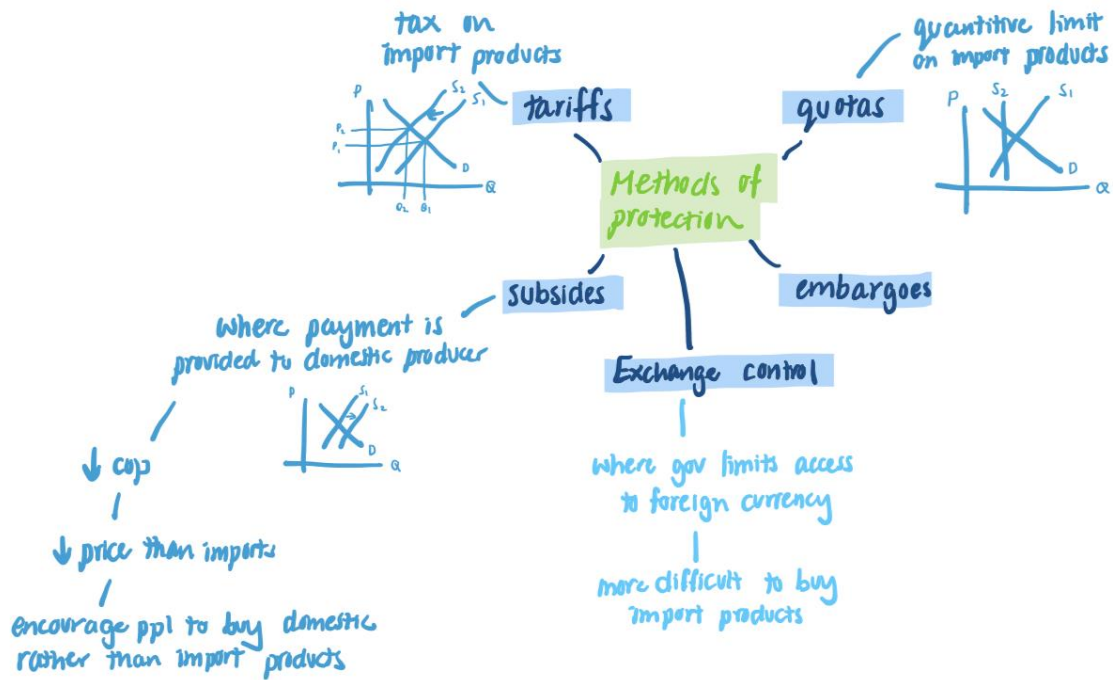 Methods of
protection
tariffs
tax on
import products
P
S2
S1
P2
P1
D
Q
Q2
Q1
quotas
quantitive limit
on import products
P
S2
S1
D
Q
subsides
where payment is
provided to domestic producer
P
S1
S2
D
Q
↓ cop
↓ price than imports
encourage ppl to buy domestic
rather than import products
embargoes
Exchange control
where gov limits access
to foreign currency
more difficult to buy
import products